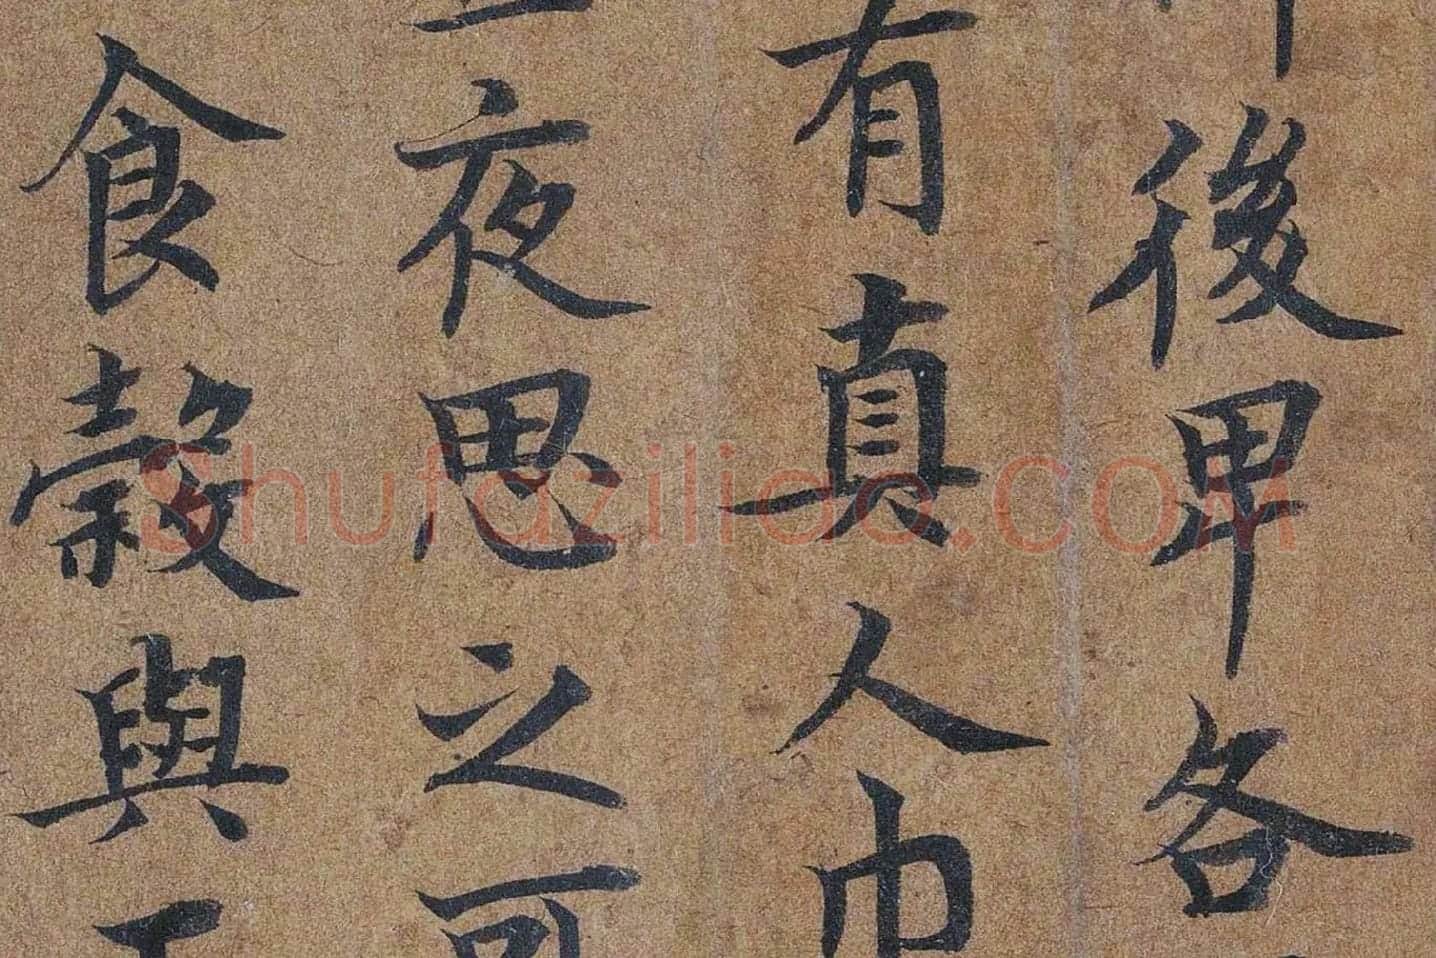 後卑各
有真人巾
夜思之可
食穀與
Shufaziliao.COM